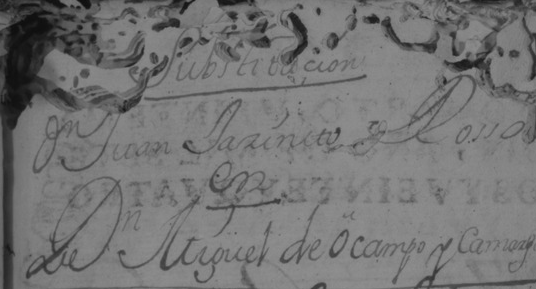 Substitucion
Dn Juan Jazinto y Rosso
en
Dn Miguel de Ocampo y Camarg